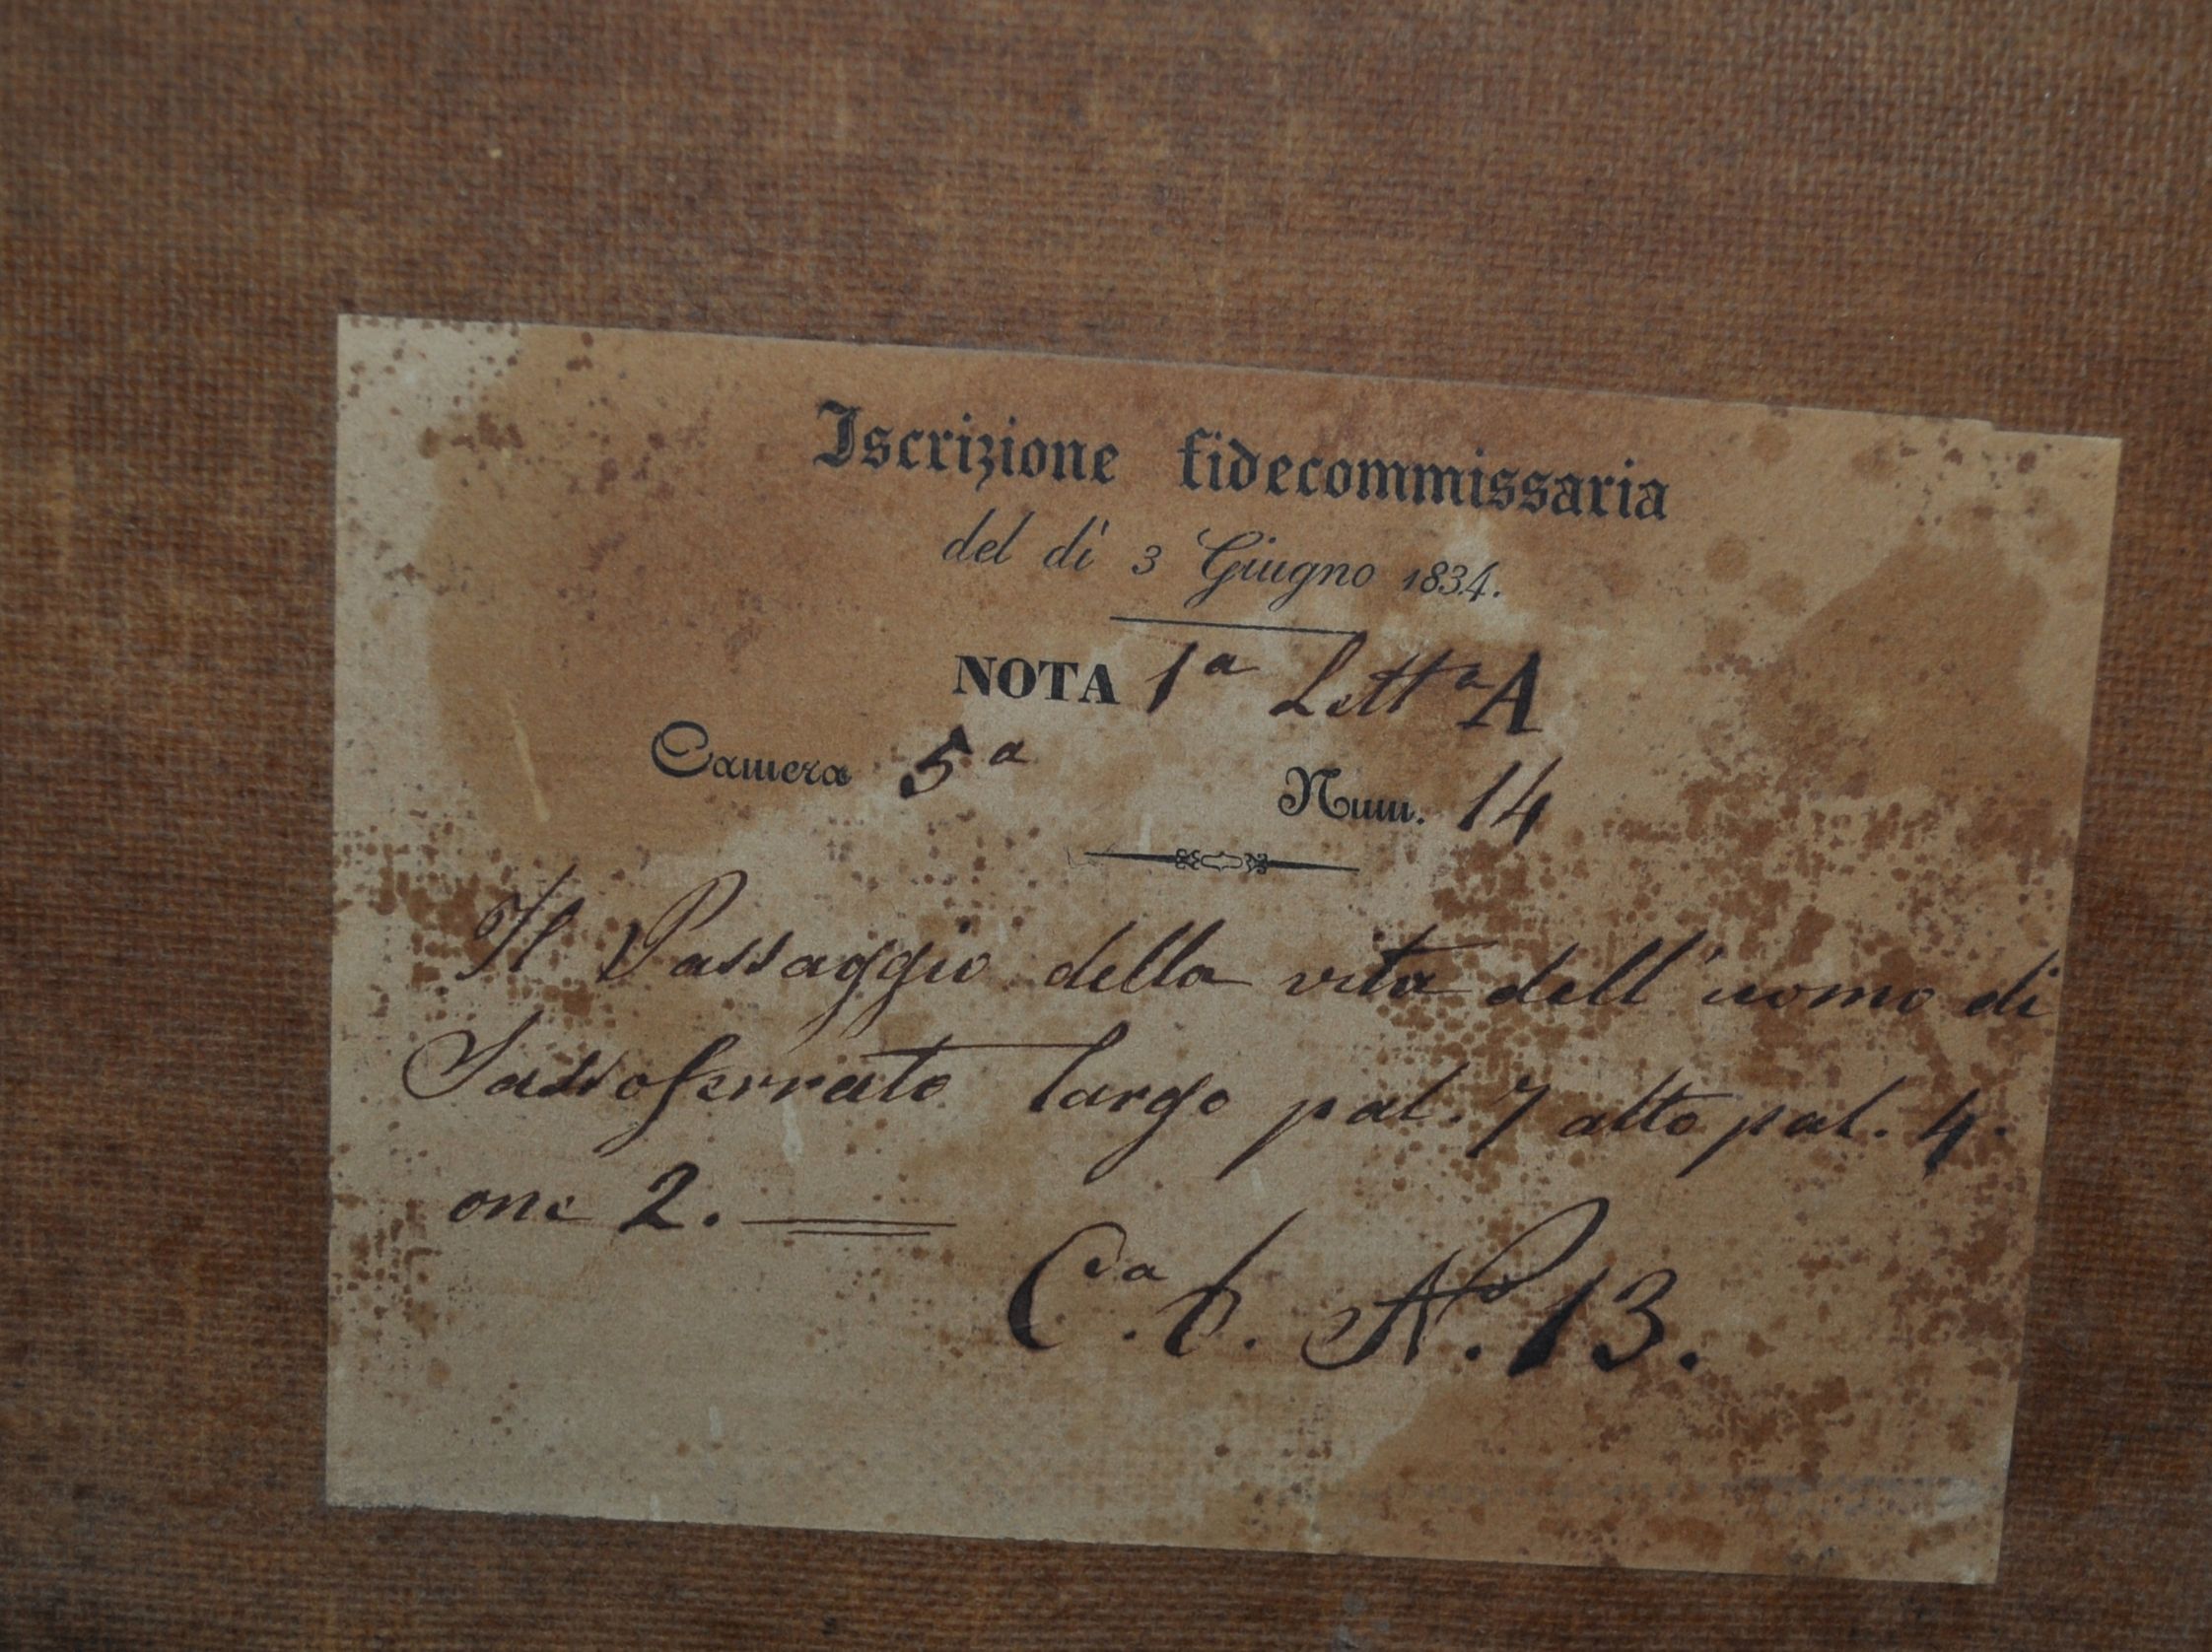 Iscrizione fidecommissaria
del dì 3 Giugno 1834.
NOTA 1ª Lettª A
Camera 5ª Num. 14
Il Passaggio della vita dell'uomo di
Sassoferrato largo pal. 7 alto pal. 4.
onc 2.
Nº. 13.